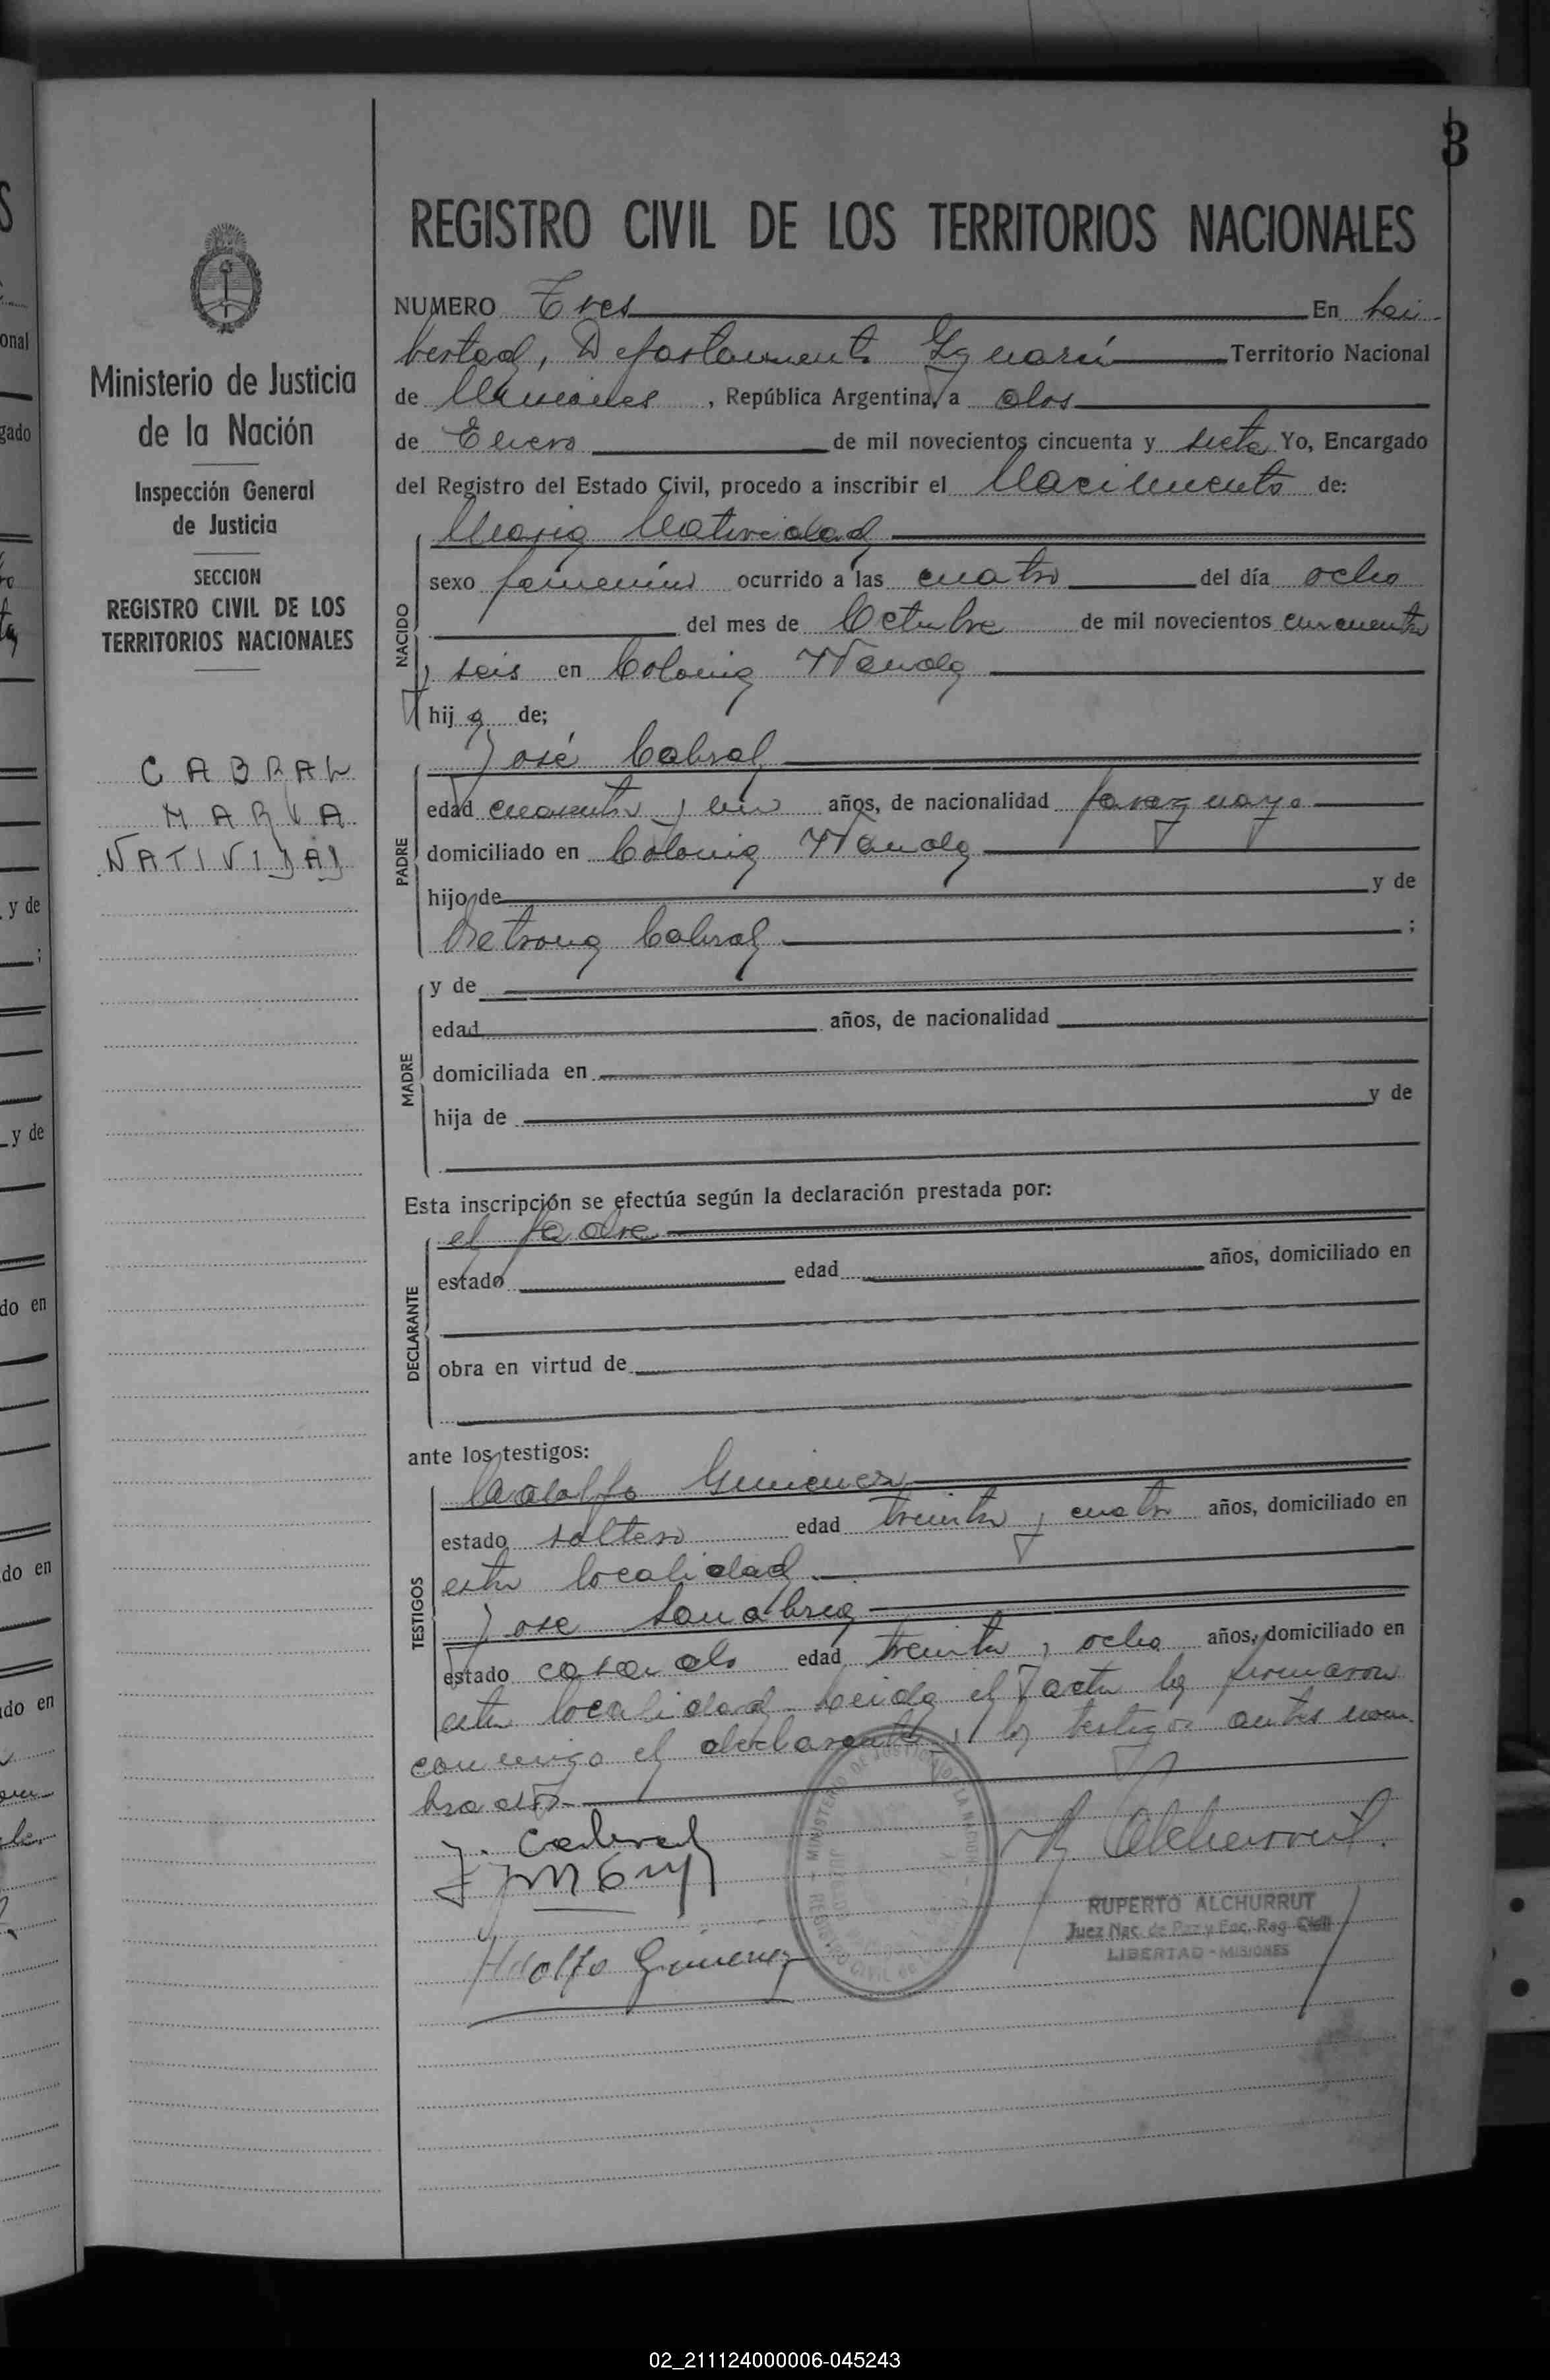 3
REGISTRO CIVIL DE LOS TERRITORIOS NACIONALES
Ministerio de Justicia
de la Nación
Inspección General
de Justicia
SECCION
REGISTRO CIVIL DE LOS
TERRITORIOS NACIONALES
CABRAL
MARIA
NATIVIDAD
NUMERO Tres En Li-
bertad, Departamento Iguazú Territorio Nacional
de Misiones, República Argentina, a dos
de Enero de mil novecientos cincuenta y siete Yo, Encargado
del Registro del Estado Civil, procedo a inscribir el Nacimiento de:
Maria Natividad
NACIDO
sexo femenino ocurrido a las cuatro del día ocho
del mes de Octubre de mil novecientos cincuenta
y seis en Colonia Wanda
hija de;
José Cabral
PADRE
edad cuarenta y un años, de nacionalidad paraguaya
domiciliado en Colonia Wanda
hijo de y de
Cabral ;
MADRE
y de
edad años, de nacionalidad
domiciliada en
hija de y de
Esta inscripción se efectúa según la declaración prestada por:
el padre
DECLARANTE
estado edad años, domiciliado en
obra en virtud de
ante los testigos:
Adolfo Gimenez
TESTIGOS
estado soltero edad treinta y cuatro años, domiciliado en
esta localidad
Jose Sanabria
estado casado edad treinta y ocho años, domiciliado en
esta localidad. Leida el acta la firmaron
conmigo el declarante y los testigos antes nom-
brados
J. Cabral
Adolfo Gimenez
R. Alchurrut.
MINISTERIO DE JUSTICIA DE LA NACION
RUPERTO ALCHURRUT
Juez Nac. de Paz y Enc. Reg. Civil
LIBERTAD - MISIONES
onal
gado
y de
;
y de
do en
do en
do en
02_211124000006-045243